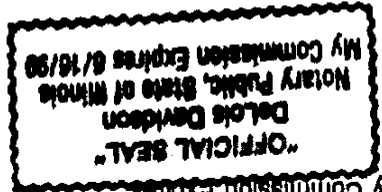 "OFFICIAL SEAL"
DeLois Davidson
Notary Public, State of Illinois
My Commission Expires 8/16/99